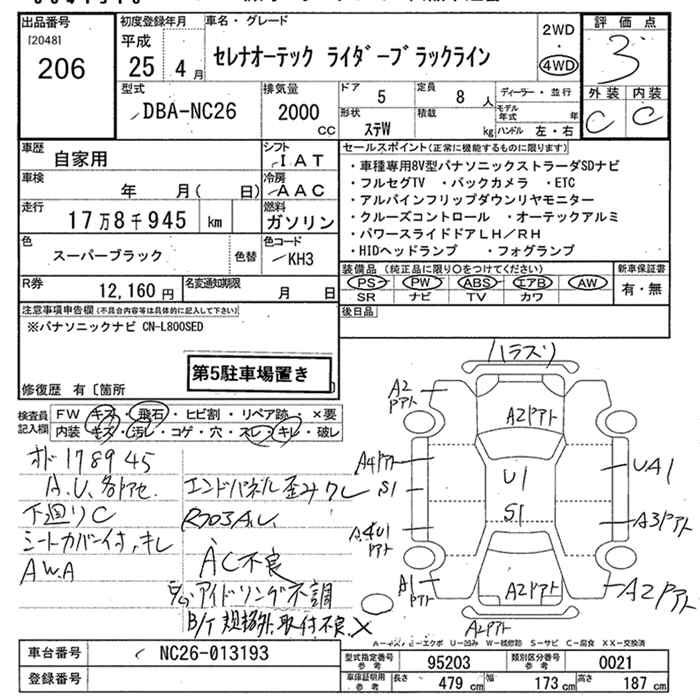 出品番号
[2048]
206
初度登録年月
平成
25年4月
車名・グレード
セレナオーテック ライダーブラックライン
2WD
・
4WD
評価点
3
外装 内装
C C
型式
DBA-NC26
排気量
2000
CC
ドア 5
定員 8人
形状 ステW
積載 kg
ディーラー・並行
モデル年式 年
ハンドル 左・右
車歴
自家用
シフト
IAT
車検
年 月( 日)
冷房
AAC
走行
17万8千945 km
燃料
ガソリン
色
スーパーブラック
色替
色コード
KH3
R券
12,160円
名変通知期限
月 日
セールスポイント(正常に機能するものに限ります)
・車種専用8V型パナソニックストラーダSDナビ
・フルセグTV ・バックカメラ ・ETC
・アルパインフリップダウンリヤモニター
・クルーズコントロール ・オーテックアルミ
・パワースライドドアLH/RH
・HIDヘッドランプ ・フォグランプ
装備品(純正品に限り○をつけてください)
PS PW ABS エアB AW
SR ナビ TV カワ
新車保証書
有・無
後日品
注意事項申告欄(不具合内容等は具体的に記入して下さい)
※パナソニックナビ CN-L800SED
第5駐車場置き
修復歴 有 〔箇所
検査員記入欄
FW キズ・飛石・ヒビ割・リペア跡・×要
内装 キズ・汚レ・コゲ・穴・スレ・キレ・破レ
オド178945
A.U.各トアセ
下廻りC
シートカバー付,キレ
AW.A
エンドパネル歪みクレ
AC不良
アイドリング不調
B/T 規格外,取付不良.X
ハラスリ
A2Pアト
A2Pアト
A4Pアト
S1
U1
S1
UA1
A4U1Pアト
A3Pアト
A1Pアト
A2Pアト
A2Pアト
A2Pアト
A-キズ
E-エクボ U-凹み W-板修跡 S-サビ C-腐食 XX-交換済
車台番号
NC26-013193
登録番号
型式指定番号 参考 95203
類別区分番号 参考 0021
車庫証明用 参考 長さ 479cm 幅 173cm 高さ 187cm